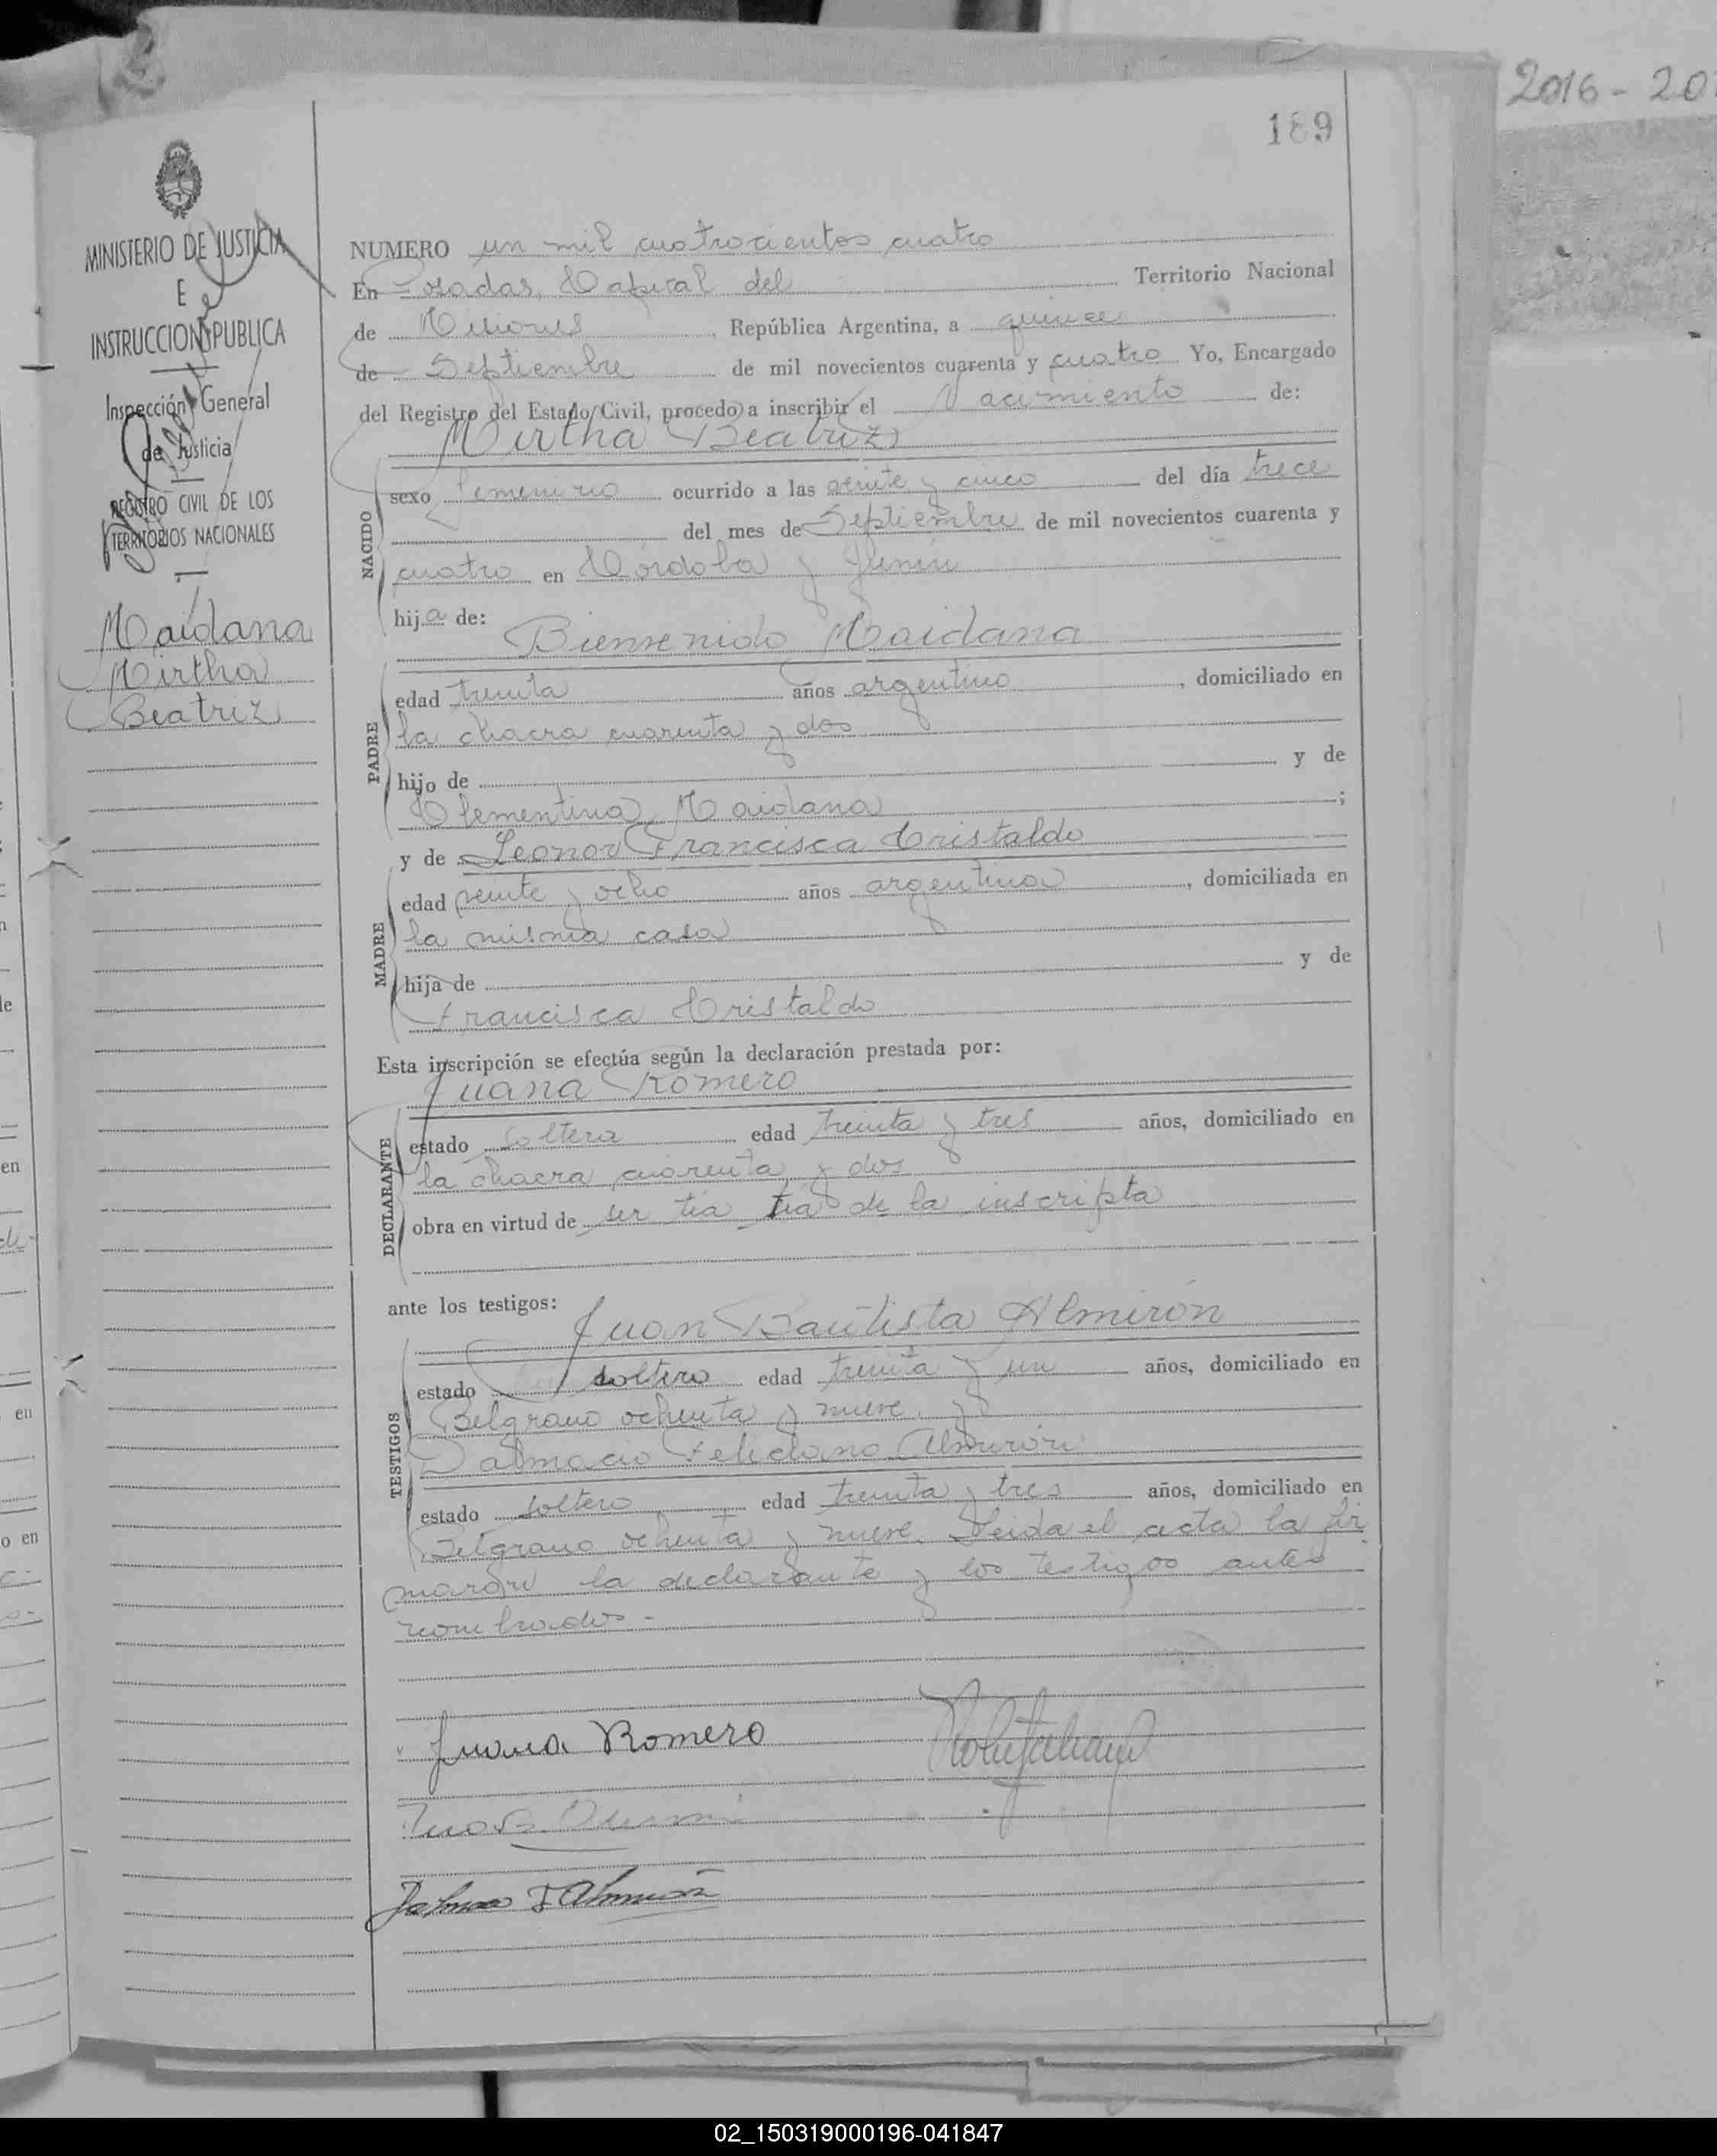 2016-20
189
MINISTERIO DE JUSTICIA
E
INSTRUCCION PUBLICA
Inspección General
de Justicia
REGISTRO CIVIL DE LOS
TERRITORIOS NACIONALES
Maidana
Mirtha
Beatriz
NUMERO un mil cuatrocientos cuatro
En Posadas, Capital del Territorio Nacional
de Misiones, República Argentina, a quince
de Septiembre de mil novecientos cuarenta y cuatro Yo, Encargado
del Registro del Estado Civil, procedo a inscribir el Nacimiento de:
Mirtha Beatriz
NACIDO
sexo femenino ocurrido a las veinte y cinco del día trece
del mes de Septiembre de mil novecientos cuarenta y
cuatro en Córdoba y Junín
hija de:
Bienvenido Maidana
PADRE
edad treinta años argentino, domiciliado en
la chacra cuarenta y dos
hijo de y de
Clementina Maidana;
y de Leonor Francisca Cristaldo
MADRE
edad veinte y ocho años argentina, domiciliada en
la misma casa
hija de y de
Francisca Cristaldo
Esta inscripción se efectúa según la declaración prestada por:
Juana Romero
DECLARANTE
estado soltera edad treinta y tres años, domiciliado en
la chacra cuarenta y dos
obra en virtud de ser tía tía de la inscripta
ante los testigos:
Juan Bautista Almirón
TESTIGOS
estado soltero edad treinta y un años, domiciliado en
Belgrano ochenta y nueve y
Dalmacio Feliciano Almirón
estado soltero edad treinta y tres años, domiciliado en
Belgrano ochenta y nueve. Leida el acta la fir
maron la declarante y los testigos antes
nombrados.-
Juana Romero
Dalmacio F Almirón
02_150319000196-041847